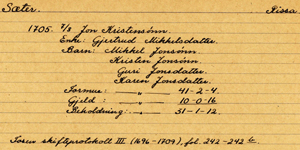 Sæter. Rissa
1705. 7/3 Jon Kristensönn.
Enke: Gjertrud Mikkelsdatter.
Barn: Mikkel Jonsönn.
Kristen Jonsönn.
Guri Jonsdatter.
Karen Jonsdatter.
Formue: — „ — 41-2-4.
Gjeld: — „ — 10-0-16
Beholdning: — „ — 31-1-12.
Fosen skifteprotokoll III (1696-1709), fol. 242-242 b.